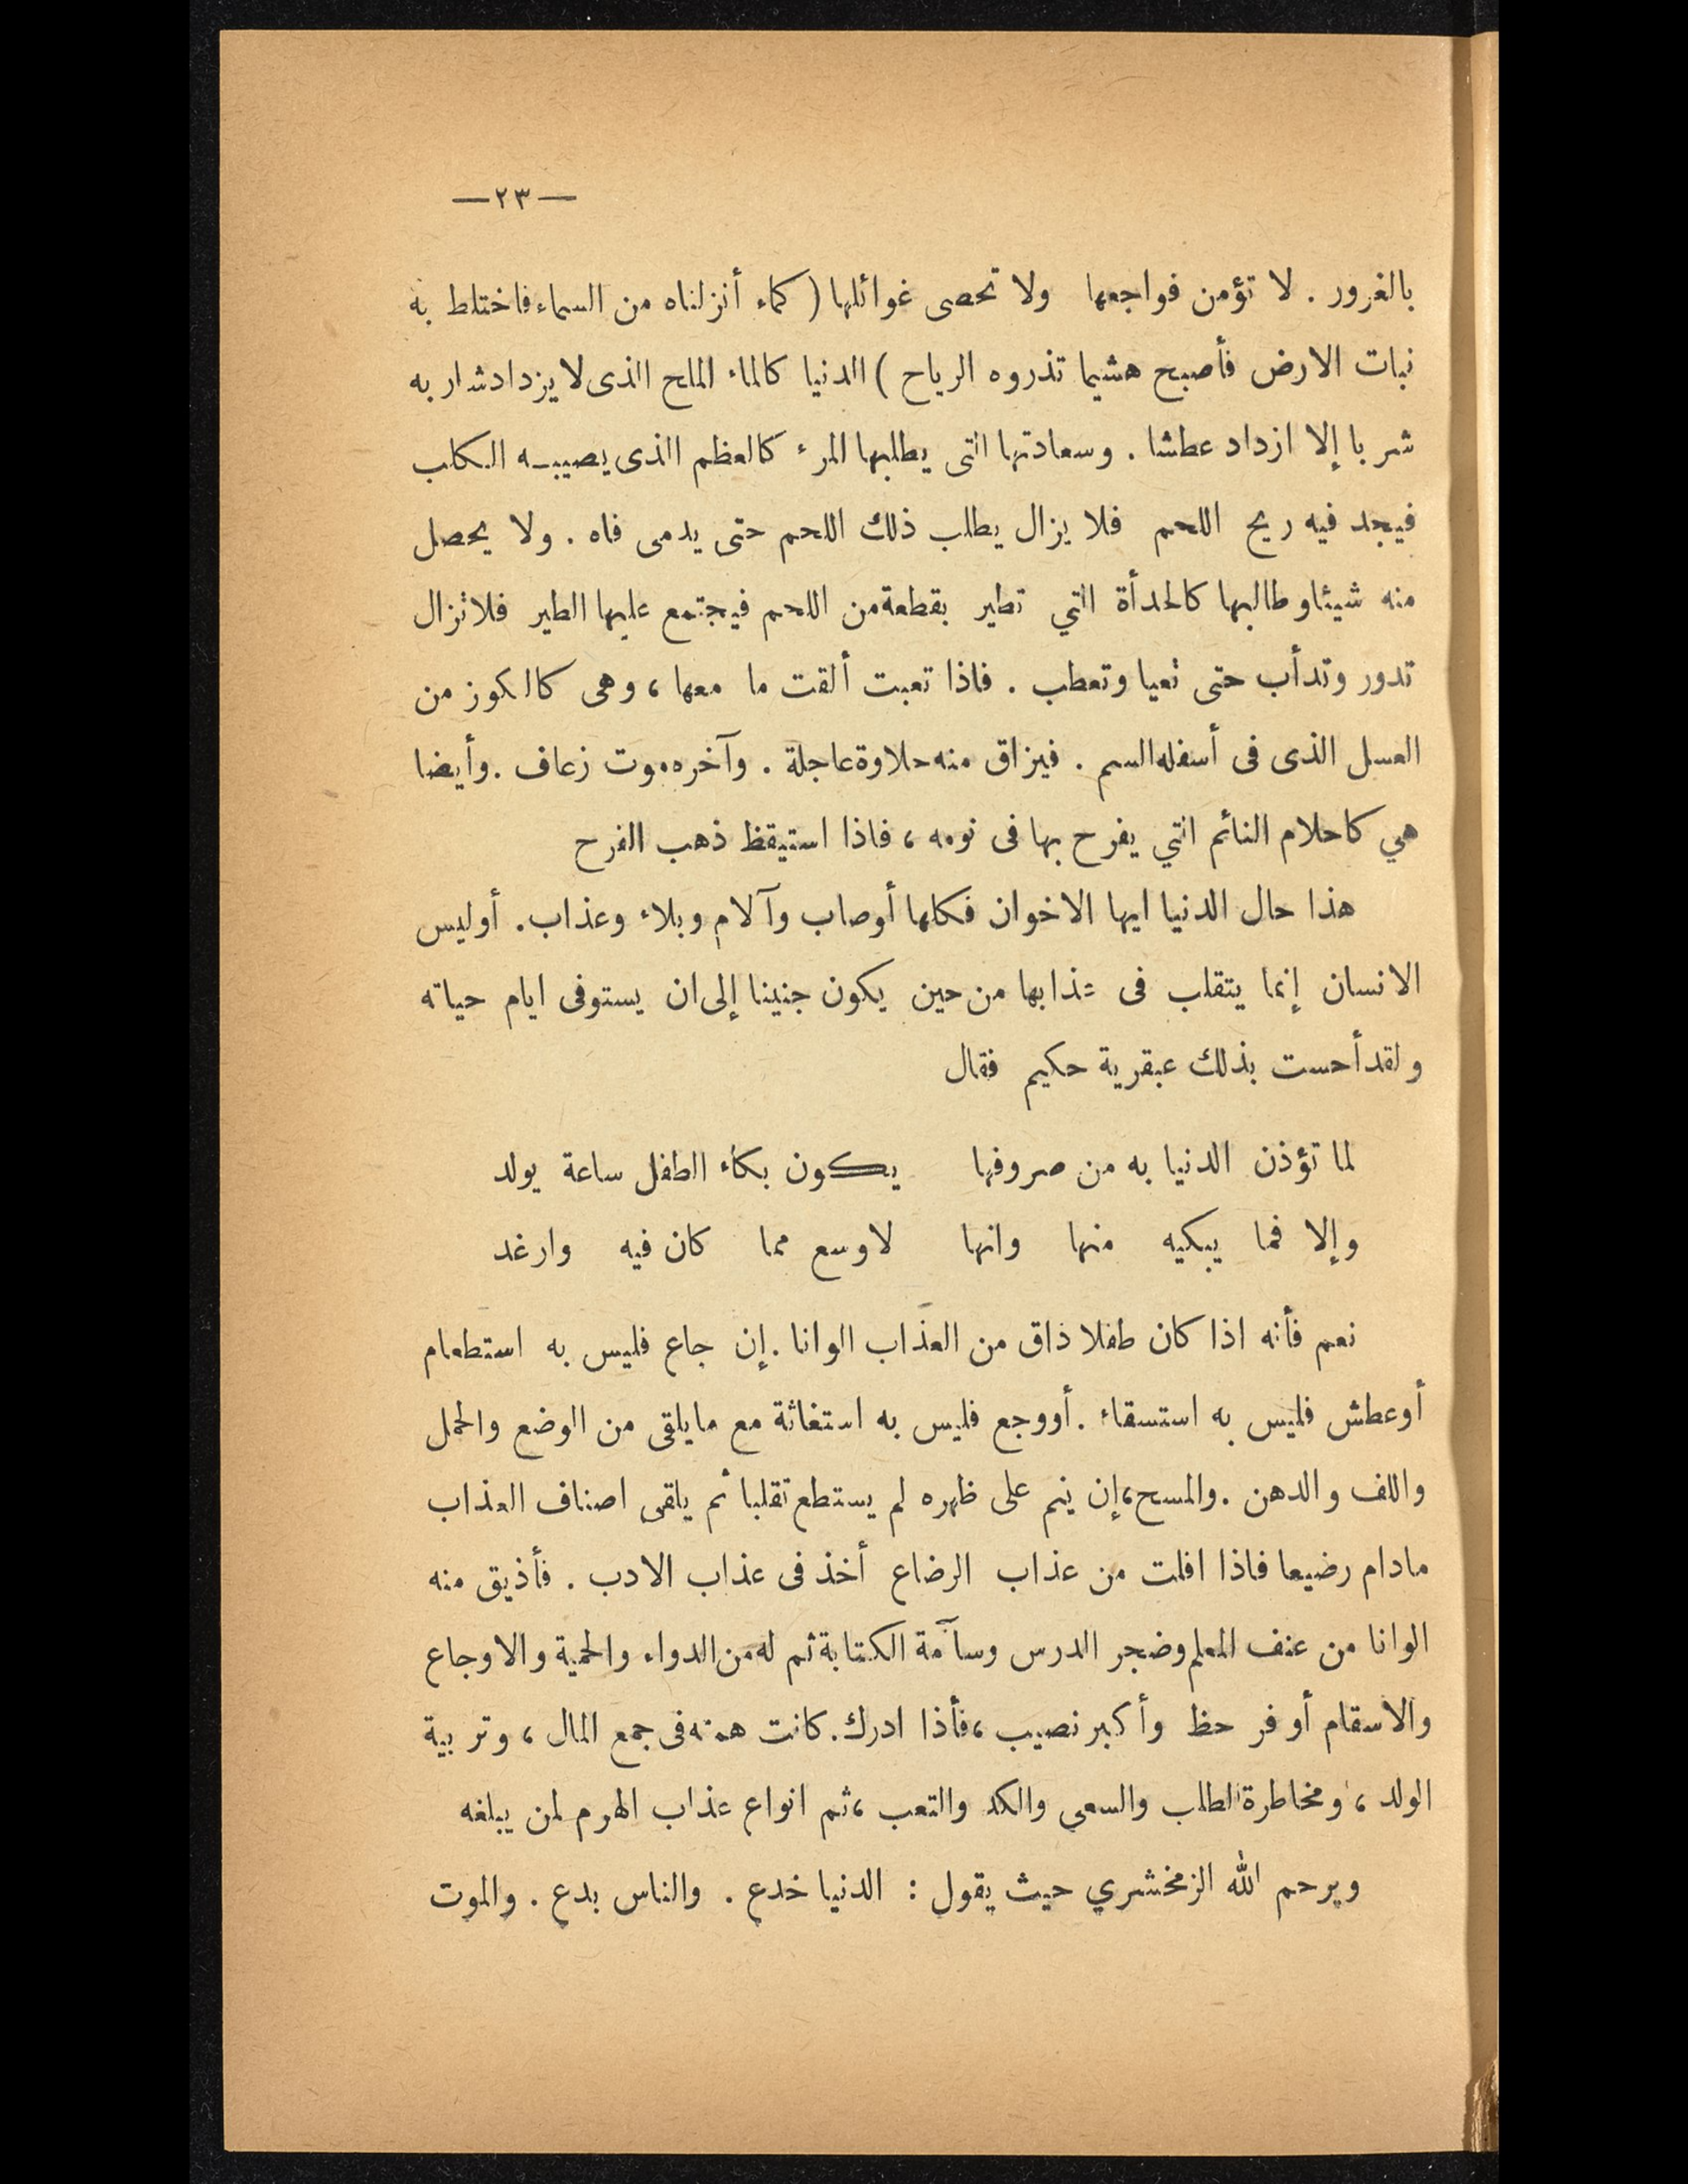 —٢٣—
بالغرور . لا تؤمن فواجعها ولا تحصى غوائلها ( كماء أنزلناه من السماء فاختلط به
نبات الارض فأصبح هشيما تذروه الرياح ) الدنيا كالماء الملح الذى لا يزداد شاربه
شربا إلا ازداد عطشا . وسعادتها التى يطلبها المرء كالعظم الذى يصيبـه الكلب
فيجد فيه ريح اللحم فلا يزال يطلب ذلك اللحم حتى يدمى فاه . ولا يحصل
منه شيئا وطالبها كالحدأة التي تطير بقطعة من اللحم فيجتمع عليها الطير فلا تزال
تدور وتدأب حتى تعيا وتعطب . فاذا تعبت ألقت ما معها ، وهى كالكوز من
العسل الذى فى أسفله السم . فيزاق منه حلاوة عاجلة . وآخره موت زعاف . وأيضا
هي كاحلام النائم التي يفرح بها فى نومه ، فاذا استيقظ ذهب الفرح
هذا حال الدنيا ايها الاخوان فكلها أوصاب وآلام وبلاء وعذاب . أوليس
الانسان إنما يتقلب فى عذابها من حين يكون جنينا إلى ان يستوفى ايام حياته
ولقد أحست بذلك عبقرية حكيم فقال
لما تؤذن الدنيا به من صروفها يكون بكاء الطفل ساعة يولد
وإلا فما يبكيه منها وانها لاوسع مما كان فيه وارغد
نعم فأنه اذا كان طفلا ذاق من العذاب الوانا . إن جاع فليس به استطعام
أو عطش فليس به استسقاء . أووجع فليس به استغاثة مع ما يلقى من الوضع والحمل
واللف والدهن . والمسح ، إن ينم على ظهره لم يستطع تقلبا ثم يلقى اصناف العذاب
مادام رضيعا فاذا افلت من عذاب الرضاع أخذ فى عذاب الادب . فأذيق منه
الوانا من عنف المعلم وضجر الدرس وسآمة الكتابة ثم له من الدواء والحمية والاوجاع
والاسقام أوفر حظ وأكبر نصيب ، فأذا ادرك . كانت همته فى جمع المال ، وتربية
الولد ، ومخاطرة الطلب والسعى والكد والتعب ، ثم انواع عذاب الهرم لمن يبلغه
ويرحم الله الزمخشري حيث يقول : الدنيا خدع . والناس بدع . والموت